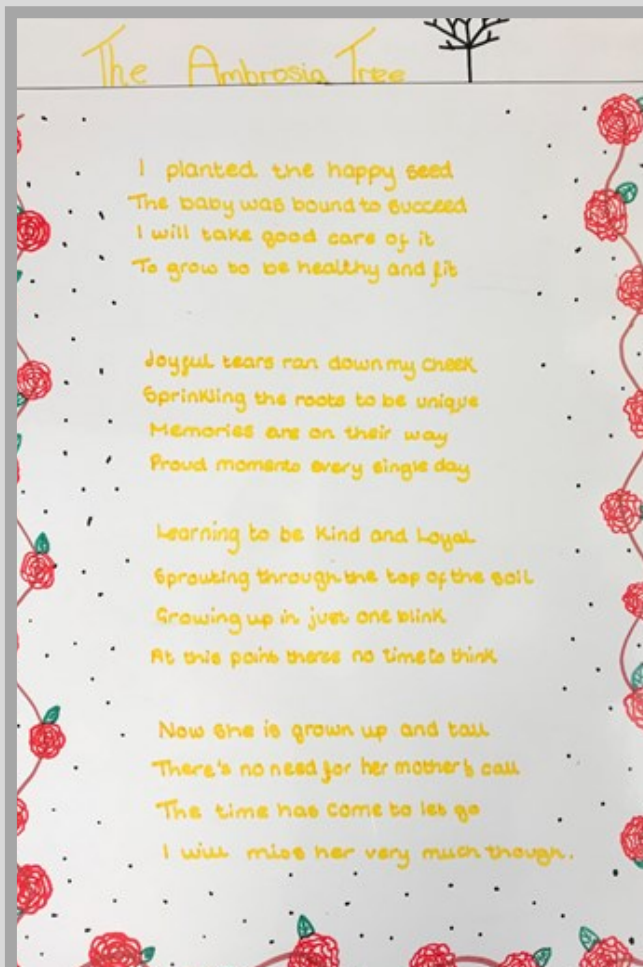 The Ambrosia Tree
I planted the happy seed
The baby was bound to succeed
I will take good care of it
To grow to be healthy and fit
Joyful tears ran down my cheek
Sprinkling the roots to be unique
Memories are on their way
Proud moments every single day
Learning to be kind and Loyal
Sprouting through the top of the soil
Growing up in just one blink
At this point theres no time to think
Now she is grown up and tall
There's no need for her mother's call
The time has come to let go
I will miss her very much though.